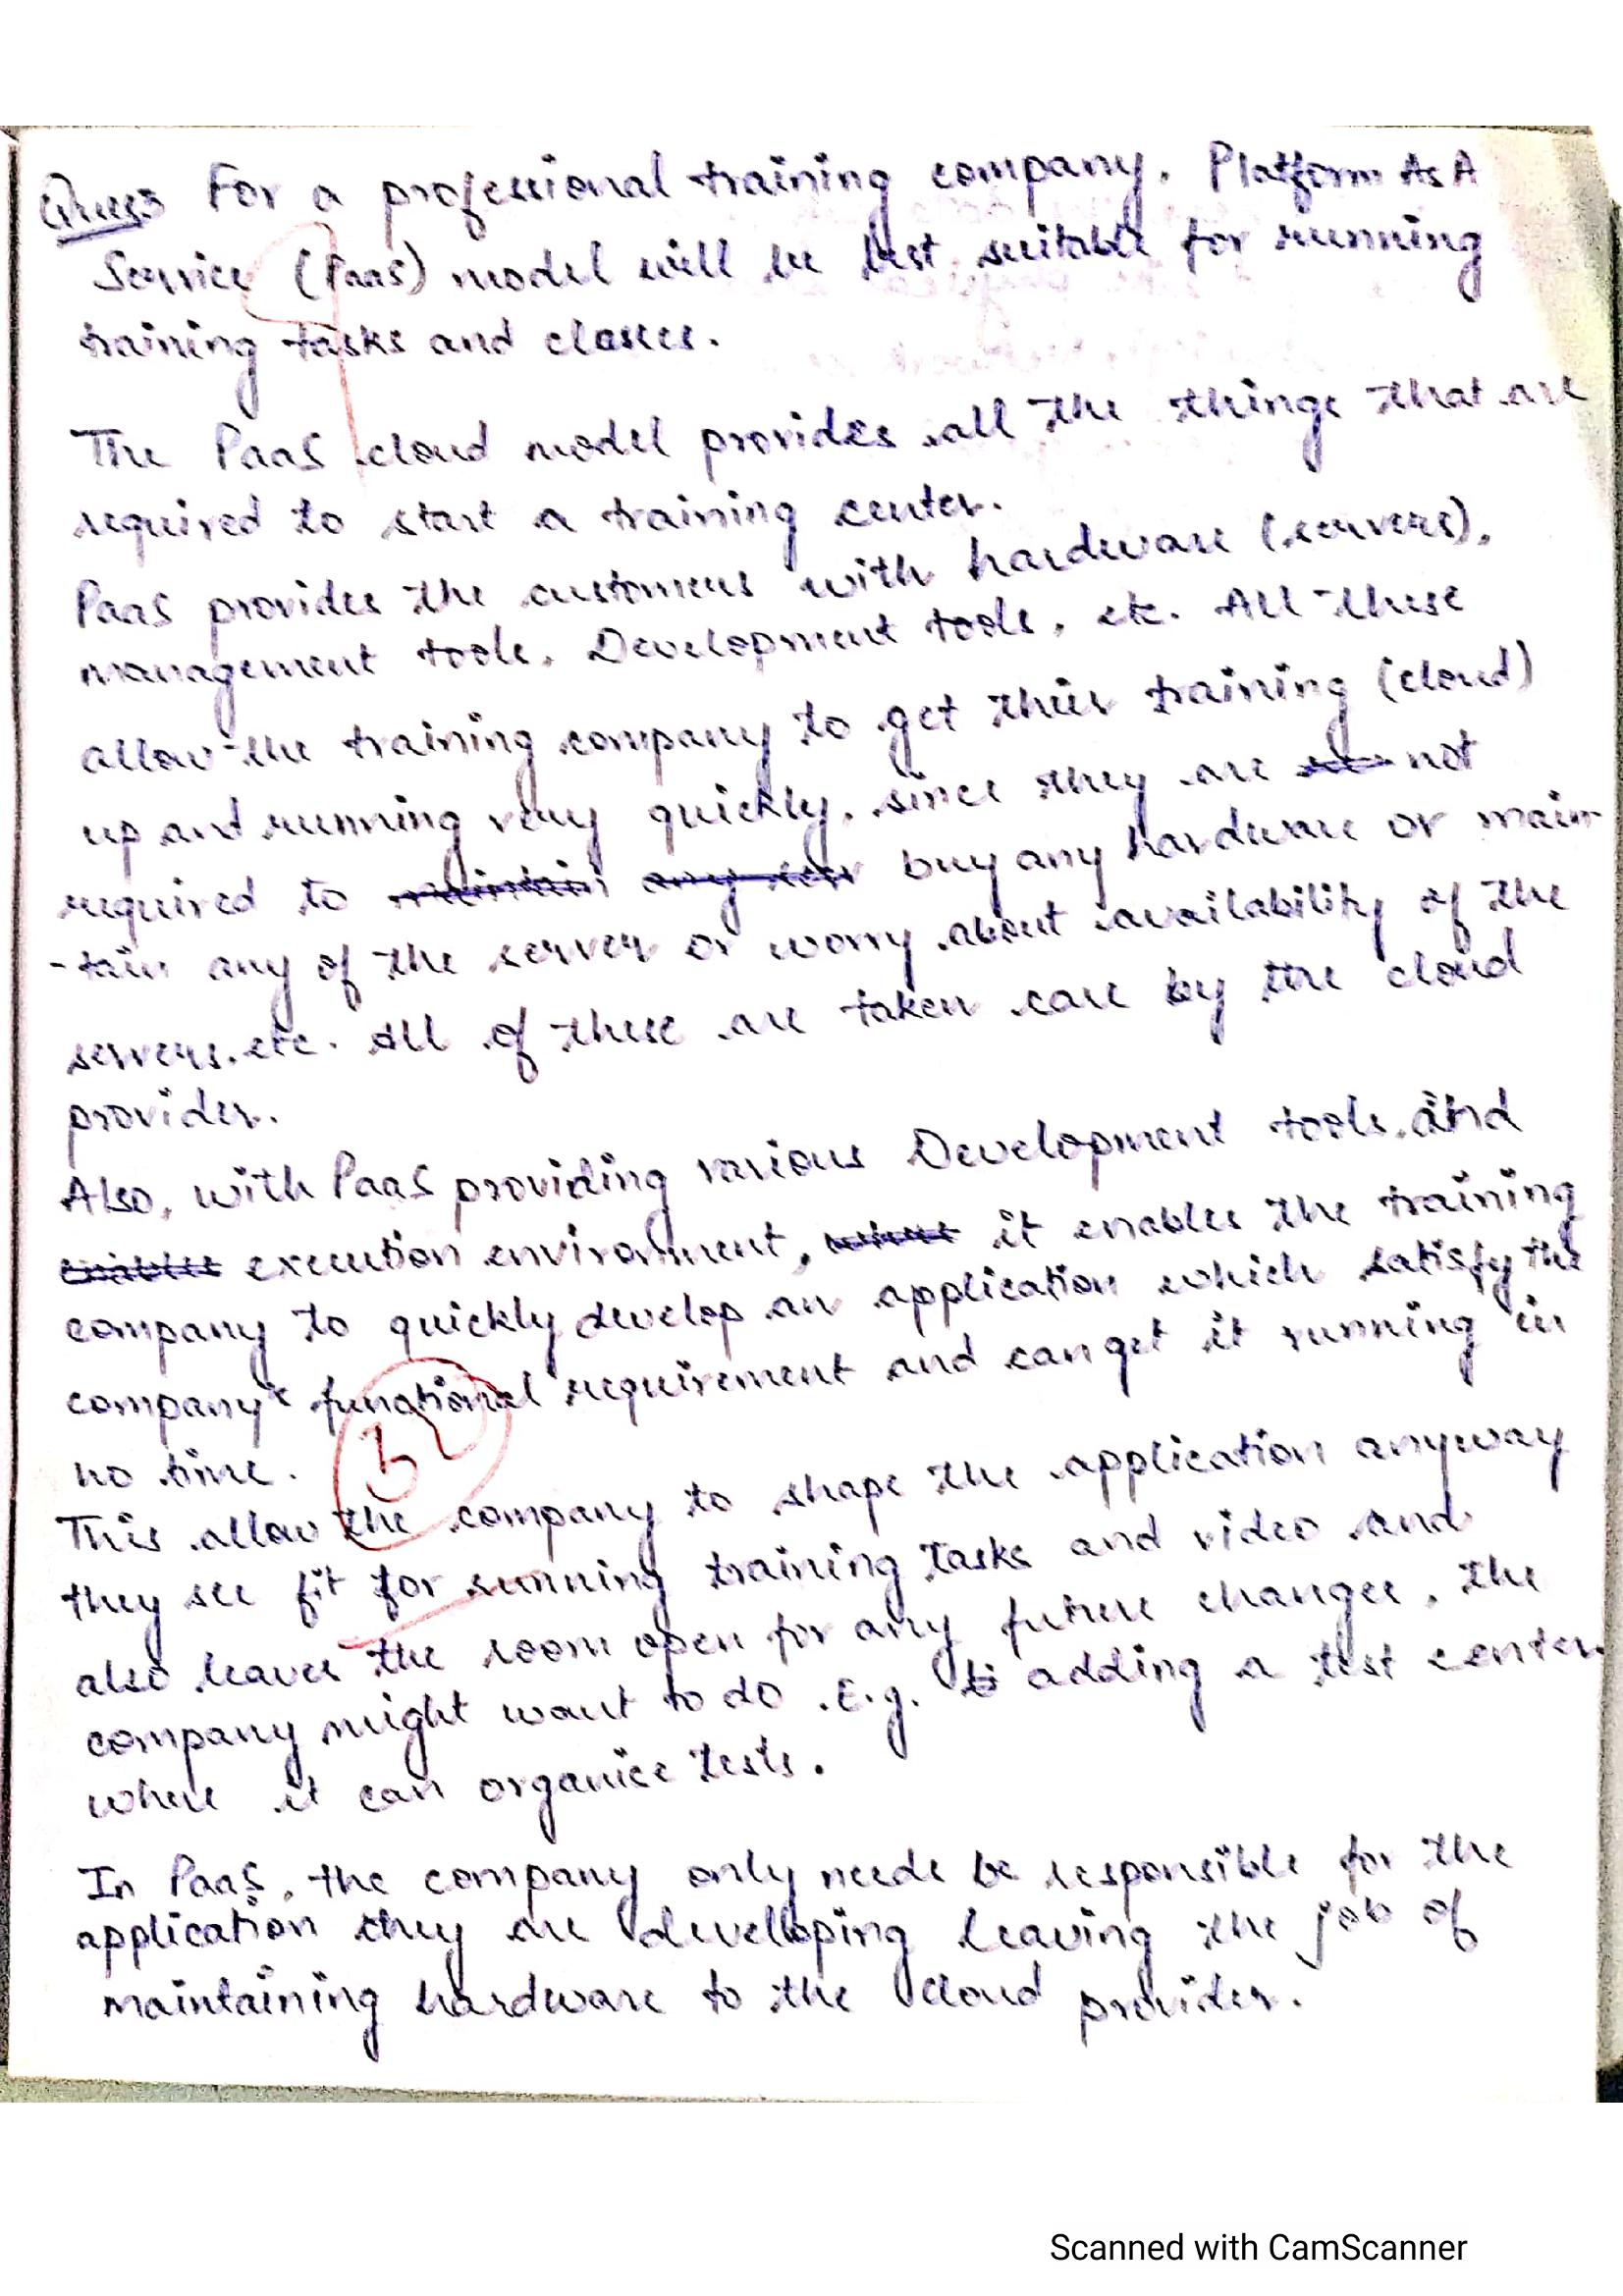 Ques3 For a professional training company, Platform As A
Service (PaaS) model will be best suitable for running
training tasks and classes.
The PaaS cloud model provides all the things that are
required to start a training center.
PaaS provides the customers with hardware (servers),
management tools, Development tools, etc. All these
allow the training company to get their training (cloud)
up and running very quickly, since they are not
required to maintain any ser buy any hardware or main-
-tain any of the server or worry about availability of the
servers, etc. All of these are taken care by the cloud
provider.
Also, with PaaS providing various Development tools, and
enables execution environment, it enables the training
company to quickly develop an application which satisfy the
company's functional requirement and can get it running in
no time.
This allow the company to shape the application anyway
they see fit for running training tasks and video and
also leaves the room open for any future changes, the
company might want to do. E.g. adding a test center
where it can organice tests.
In PaaS, the company only needs be responsible for the
application they are developing leaving the job of
maintaining hardware to the cloud provider.
Scanned with CamScanner